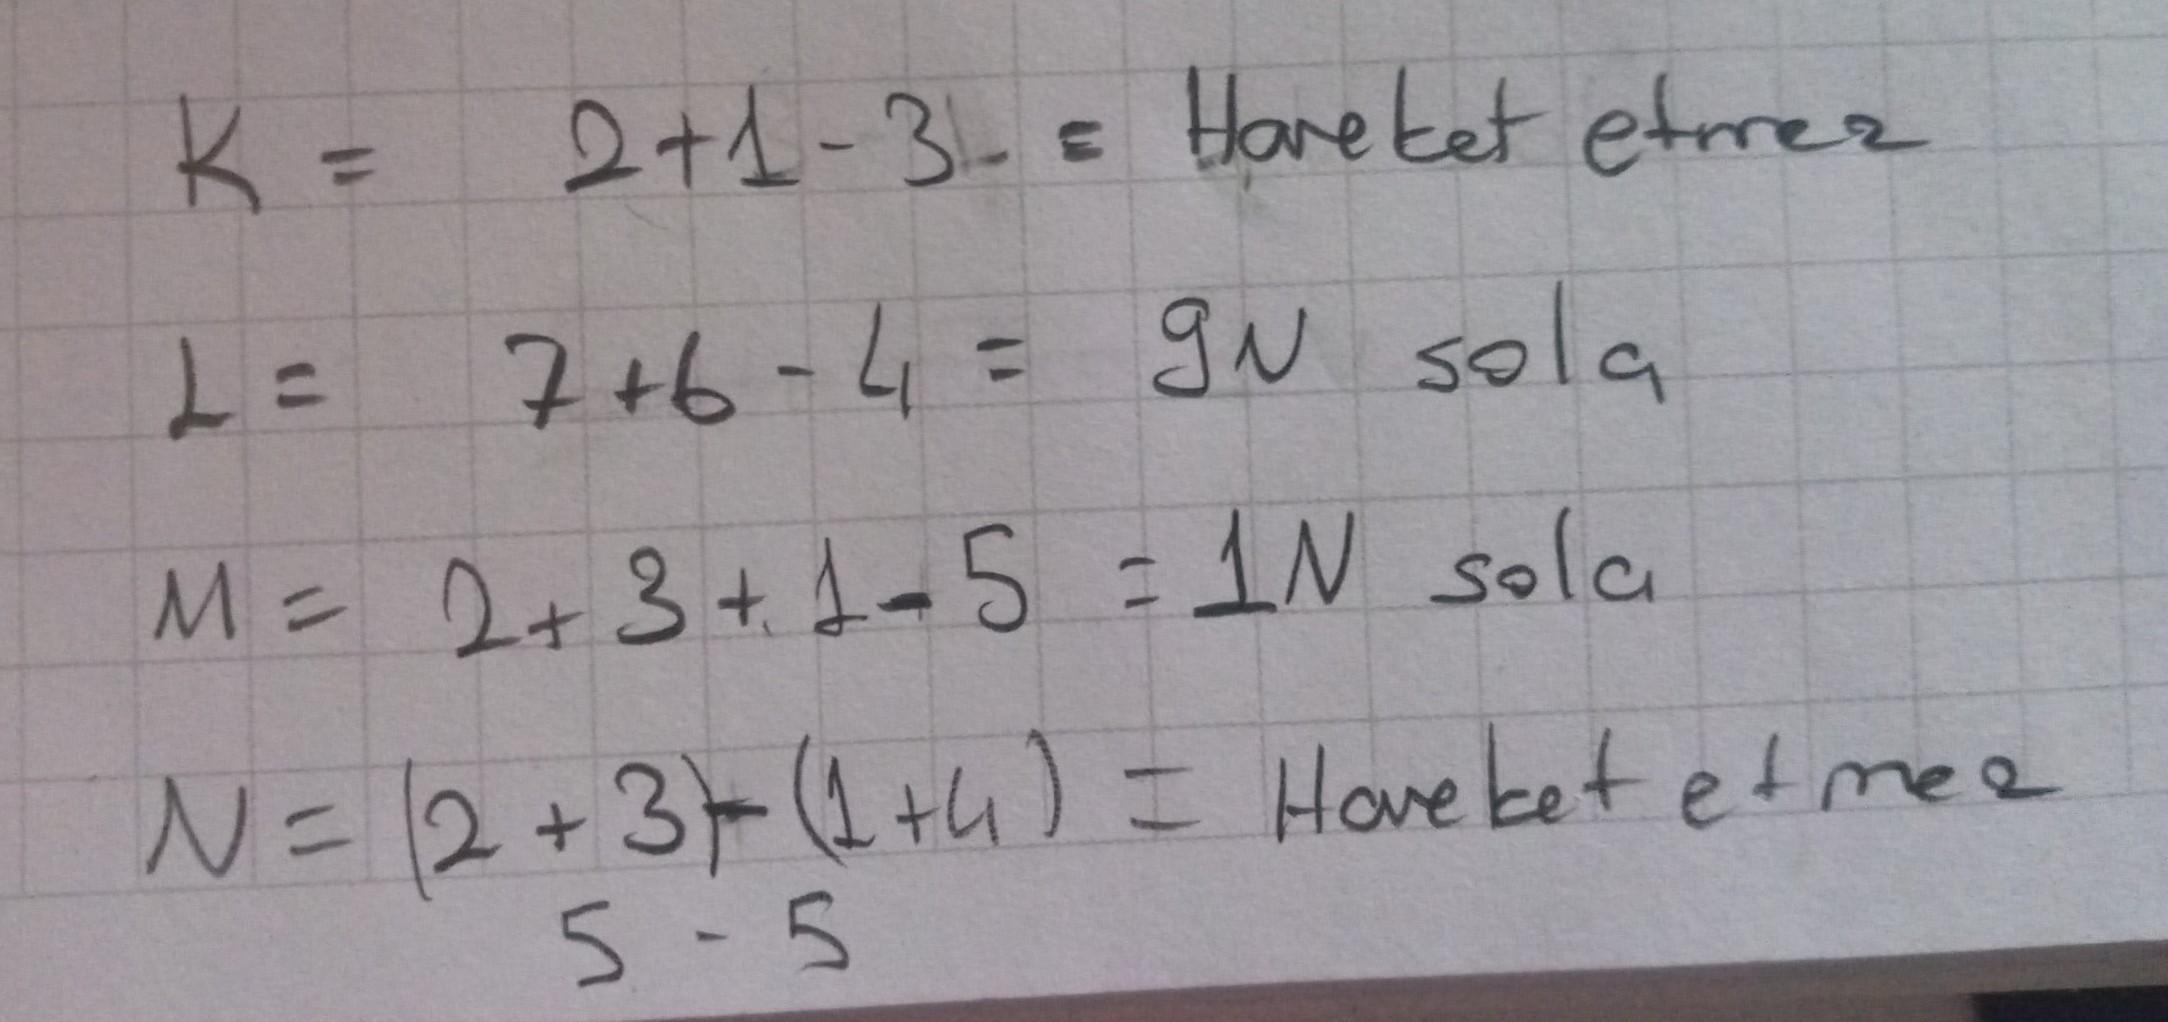 K = 2+1-3 = Hareket etmez
L = 7+6-4 = 9N sola
M = 2+3+1-5 = 1N sola
N = (2+3)-(1+4) = Hareket etmez
5 - 5